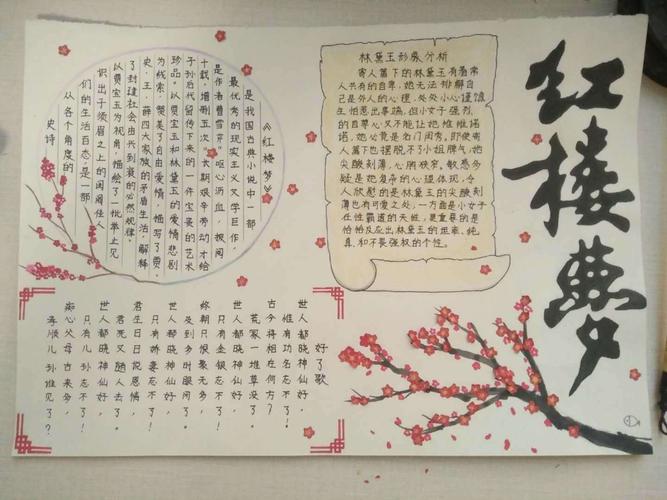 红楼夢
《红楼梦》
是我国古典小说中一部
最优秀的现实主义文学巨作，
是作者曹雪芹呕心沥血，披阅
十载，增删五次，"长期艰辛劳动才给
子孙后代留传下来的一件宝贵的艺术
珍品。以贾宝玉和林黛玉的爱情悲剧
为线索，赞美了自由爱情，描写了贾、
史、王、薛四大家族的矛盾生活，解释
了封建社会由兴到衰的必然规律。
以贾宝玉为视角，描绘了一批举止见
识出于须眉之上的闺阁佳人
们的生活百态，是一部
从各个角度的
史诗
林黛玉形象分析
寄人篱下的林黛玉有着常
人共有的自卑，她无法排解自
己是外人的心理，处处小心谨慎
生怕惹出事端，但小女子强烈
的自尊心又不能让她唯唯诺
诺，她必竟是名门闺秀，即使寄
人篱下也摆脱不了小姐脾气，她
尖酸刻薄，心胸狭窄，敏感多
疑是她复杂的心理体现，令
人欣慰的是林黛玉的尖酸刻
薄也有可爱之处，一方面是小女子
在性霸道的天性，更重要的是
恰恰反应出林黛玉的坦率，纯
真，和不畏强权的个性。
好了歌
世人都晓神仙好，
惟有功名忘不了！
古今将相在何方？
荒冢一堆草没了。
世人都晓神仙好，
只有金银忘不了！
终朝只恨聚无多，
及到多时眼闭了。
世人都晓神仙好，
只有娇妻忘不了！
君生日日说恩情，
君死又随人去了。
世人都晓神仙好，
只有儿孙忘不了！
痴心父母古来多，
孝顺儿孙谁见了？